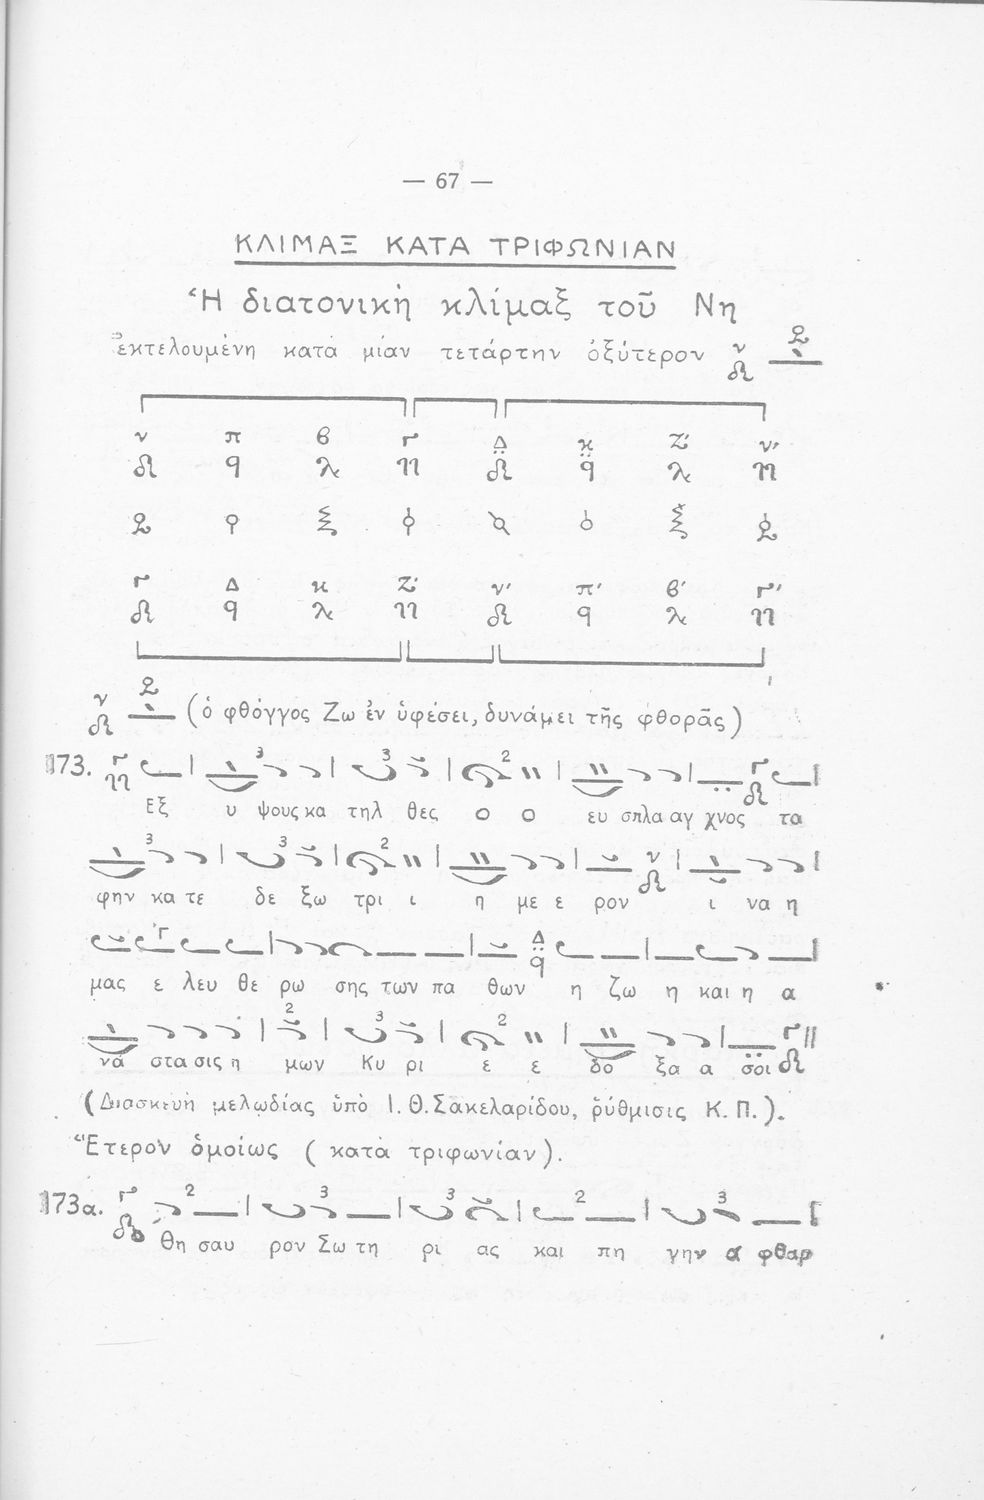 — 67 —
ΚΛΙΜΑΞ ΚΑΤΑ ΤΡΙΦΩΝΙΑΝ
Ἡ διατονικὴ κλίμαξ τοῦ Νη
ἐκτελουμένη κατὰ μίαν τετάρτην ὀξύτερον ν
ν π β Γ Δ κ Ζʹ νʹ
Γ Δ κ Ζʹ νʹ πʹ βʹ Γʹ
ν (ὁ φθόγγος Ζω ἐν ὑφέσει, δυνάμει τῆς φθορᾶς)
173. Γ 3 3 2 Γ
Εξ υ ψους κα τηλ θες ο ο ευ σπλα αγ χνος τα
3 3 2 ν
φην κα τε δε ξω τρι ι η με ε ρον ι να η
Γ Δ
μας ε λευ θε ρω σης των πα θων η ζω η και η α
2 3 2 Γ
νά στα σις η μων Κυ ρι ε ε δο ξα α σοι
(Διασκευὴ μελωδίας ὑπὸ Ι. Θ. Σακελαρίδου, ῥύθμισις Κ. Π.).
Ἕτερον ὁμοίως (κατὰ τριφωνίαν).
173α. Γ 2 3 3 2 3
Θη σαυ ρον Σω τη ρι ας και πη γην α φθαρ